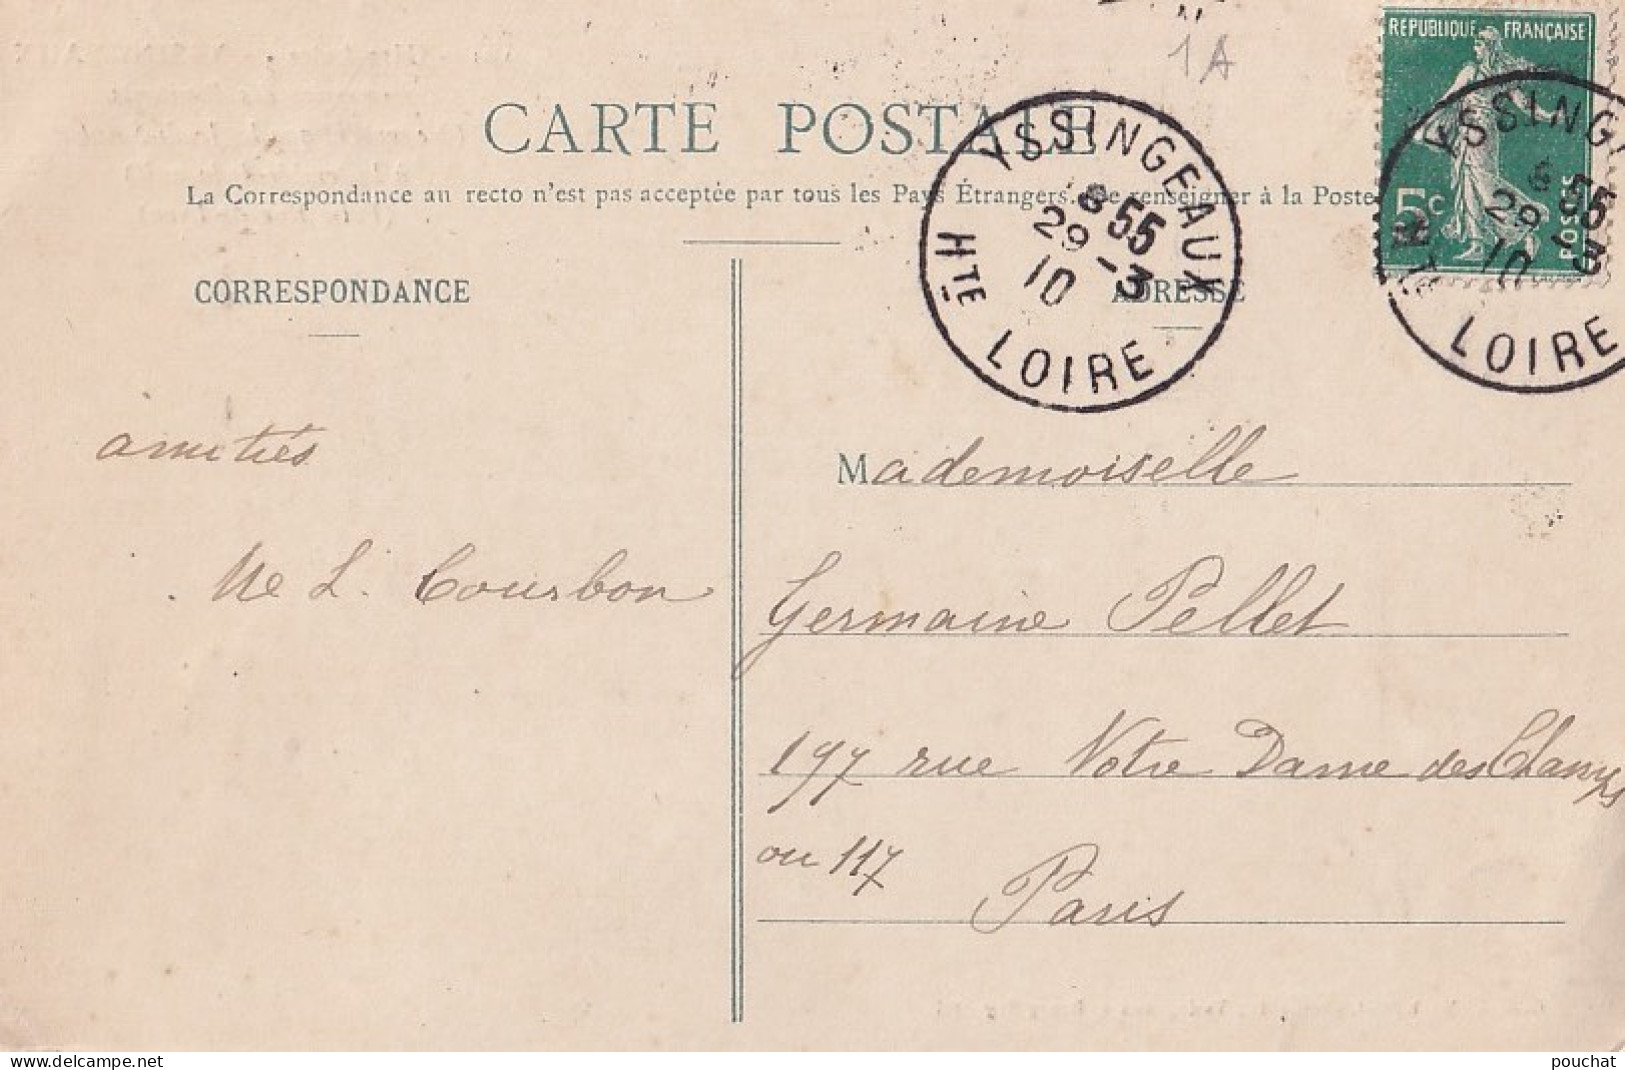 1A
REPUBLIQUE FRANÇAISE
5c
POSTES
CARTE POSTALE
La Correspondance au recto n'est pas acceptée par tous les Pays Étrangers. Se renseigner à la Poste
YSSINGEAUX
6 55
29 - 3
10
HTE LOIRE
YSSING
6 55
29 - 3
10
HTE LOIRE
CORRESPONDANCE
ADRESSE
amitiés
Me L. Courbon
Mademoiselle
Germaine Pellet
197 rue Notre Dame des Champs
ou 117
Paris
pouchat